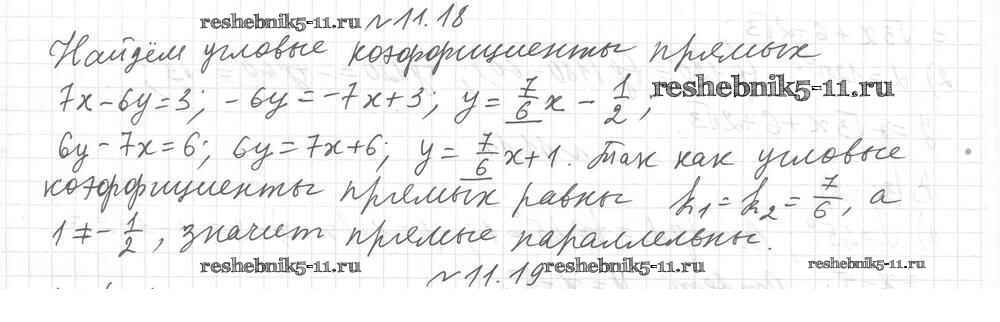 reshebnik5-11.ru №11.18
Найдём угловые коэффициенты прямых
7x-6y=3; -6y=-7x+3; y=7/6x-1/2, reshebnik5-11.ru
6y-7x=6; 6y=7x+6; y=7/6x+1. Так как угловые
коэффициенты прямых равны k₁=k₂=7/6, а
1≠-1/2, значит прямые параллельны.
reshebnik5-11.ru №11.19 reshebnik5-11.ru reshebnik5-11.ru